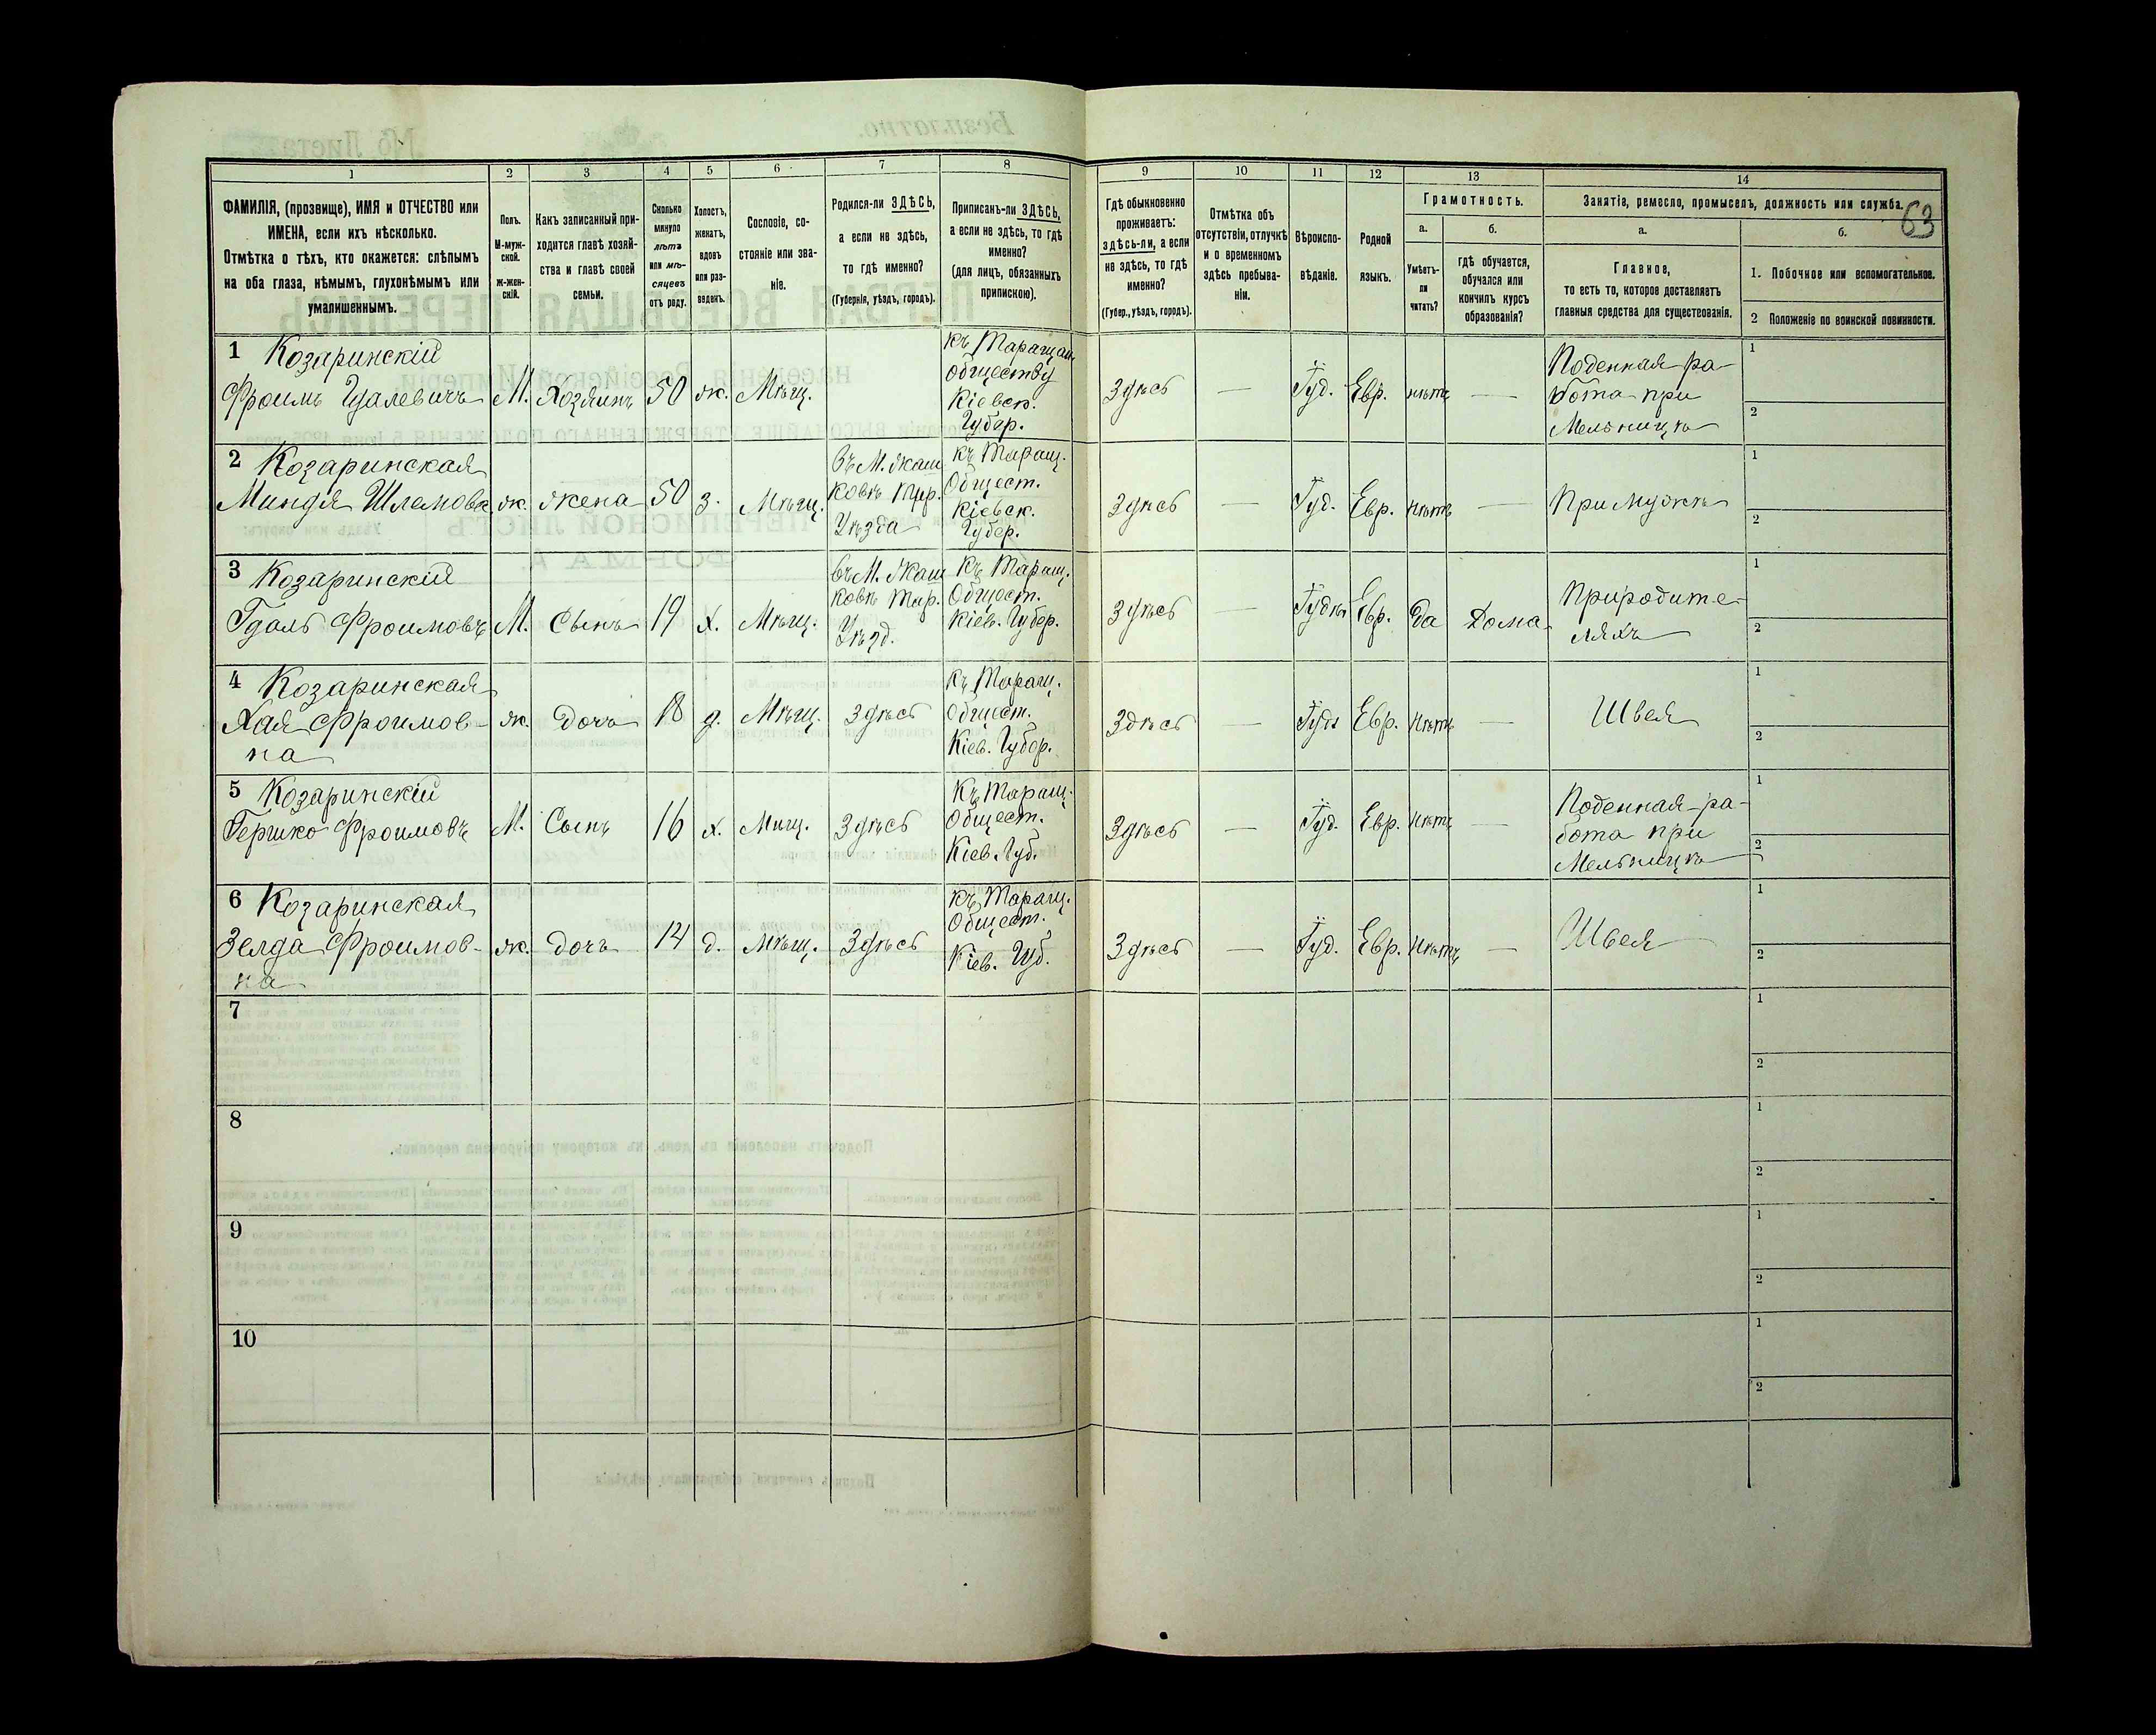 63
1 2 3 4 5 6 7 8 9 10 11 12 13 14
ФАМИЛІЯ, (прозвище), ИМЯ и ОТЧЕСТВО или
ИМЕНА, если ихъ нѣсколько.
Отмѣтка о тѣхъ, кто окажется: слѣпымъ
на оба глаза, нѣмымъ, глухонѣмымъ или
умалишеннымъ.
Полъ.
М-муж-
ской.
ж-жен-
скій.
Какъ записанный при-
ходится главѣ хозяй-
ства и главѣ своей
семьи.
Сколько
минуло
лѣтъ
или мѣ-
сяцевъ
отъ роду.
Холостъ,
женатъ,
вдовъ
или раз-
веденъ.
Сословіе, со-
стояніе или зва-
ніе.
Родился-ли ЗДѢСЬ,
а если не здѣсь,
то гдѣ именно?
(Губернія, уѣздъ, городъ).
Приписанъ-ли ЗДѢСЬ,
а если не здѣсь, то гдѣ
именно?
(для лицъ, обязанныхъ
припискою).
Гдѣ обыкновенно
проживаетъ:
здѣсь-ли, а если
не здѣсь, то гдѣ
именно?
(Губер., уѣздъ, городъ).
Отмѣтка объ
отсутствіи, отлучкѣ
и о временномъ
здѣсь пребыва-
ніи.
Вѣроиспо-
вѣданіе.
Родной
языкъ.
Грамотность.
а.
Умѣетъ-
ли
читать?
б.
гдѣ обучается,
обучался или
кончилъ курсъ
образованія?
Занятіе, ремесло, промыселъ, должность или служба.
а.
Главное,
то есть то, которое доставляетъ
главныя средства для существованія.
б.
1. Побочное или вспомогательное.
2 Положеніе по воинской повинности.
1 Козаринскій
Фроимъ Гдалевичъ
М.
Хозяинъ
50
ж.
Мѣщ.
къ Таращан.
обществу
Кіевск.
Губер.
Здѣсь
—
Іуд.
Евр.
нѣтъ
—
Поденная ра-
бота при
Мельницѣ
1
2
2 Козаринская
Миндя Шлемовн
ж.
жена
50
з.
Мѣщ.
въ М. Жаш
ковѣ Тар.
Уѣзда
къ Таращ.
Общест.
Кіевск.
Губер.
Здѣсь
—
Іуд.
Евр.
нѣтъ
—
При мужѣ
1
2
3 Козаринскій
Гдаль Фроимовъ
М.
Сынъ
19
х.
Мѣщ.
въ М. Жаш
ковѣ Тар.
Уѣзд.
къ Таращ.
Общест.
Кіев. Губер.
Здѣсь
—
Евр.
да
Дома
При родите-
ляхъ
1
2
4 Козаринская
Хая Фроимов-
на
ж.
дочь
18
д.
Мѣщ.
Здѣсь
къ Таращ.
Общест.
Кіев. Губер.
Здѣсь
—
Іуд.
Евр.
нѣтъ
—
Швея
1
2
5 Козаринскій
Гершко Фроимовъ
М.
Сынъ
16
х.
Мѣщ.
Здѣсь
Къ Таращ.
Общест.
Кіев. Губ.
Здѣсь
—
Іуд.
Евр.
нѣтъ
—
Поденная ра-
бота при
Мельницѣ
1
2
6 Козаринская
Зелда Фроимов-
на
ж.
дочь
14
д.
мѣщ.
Здѣсь
къ Таращ.
Общест.
Кіев. Губ.
Здѣсь
—
Іуд.
Евр.
нѣтъ
—
Швея
1
2
7
1
2
8
1
2
9
1
2
10
1
2